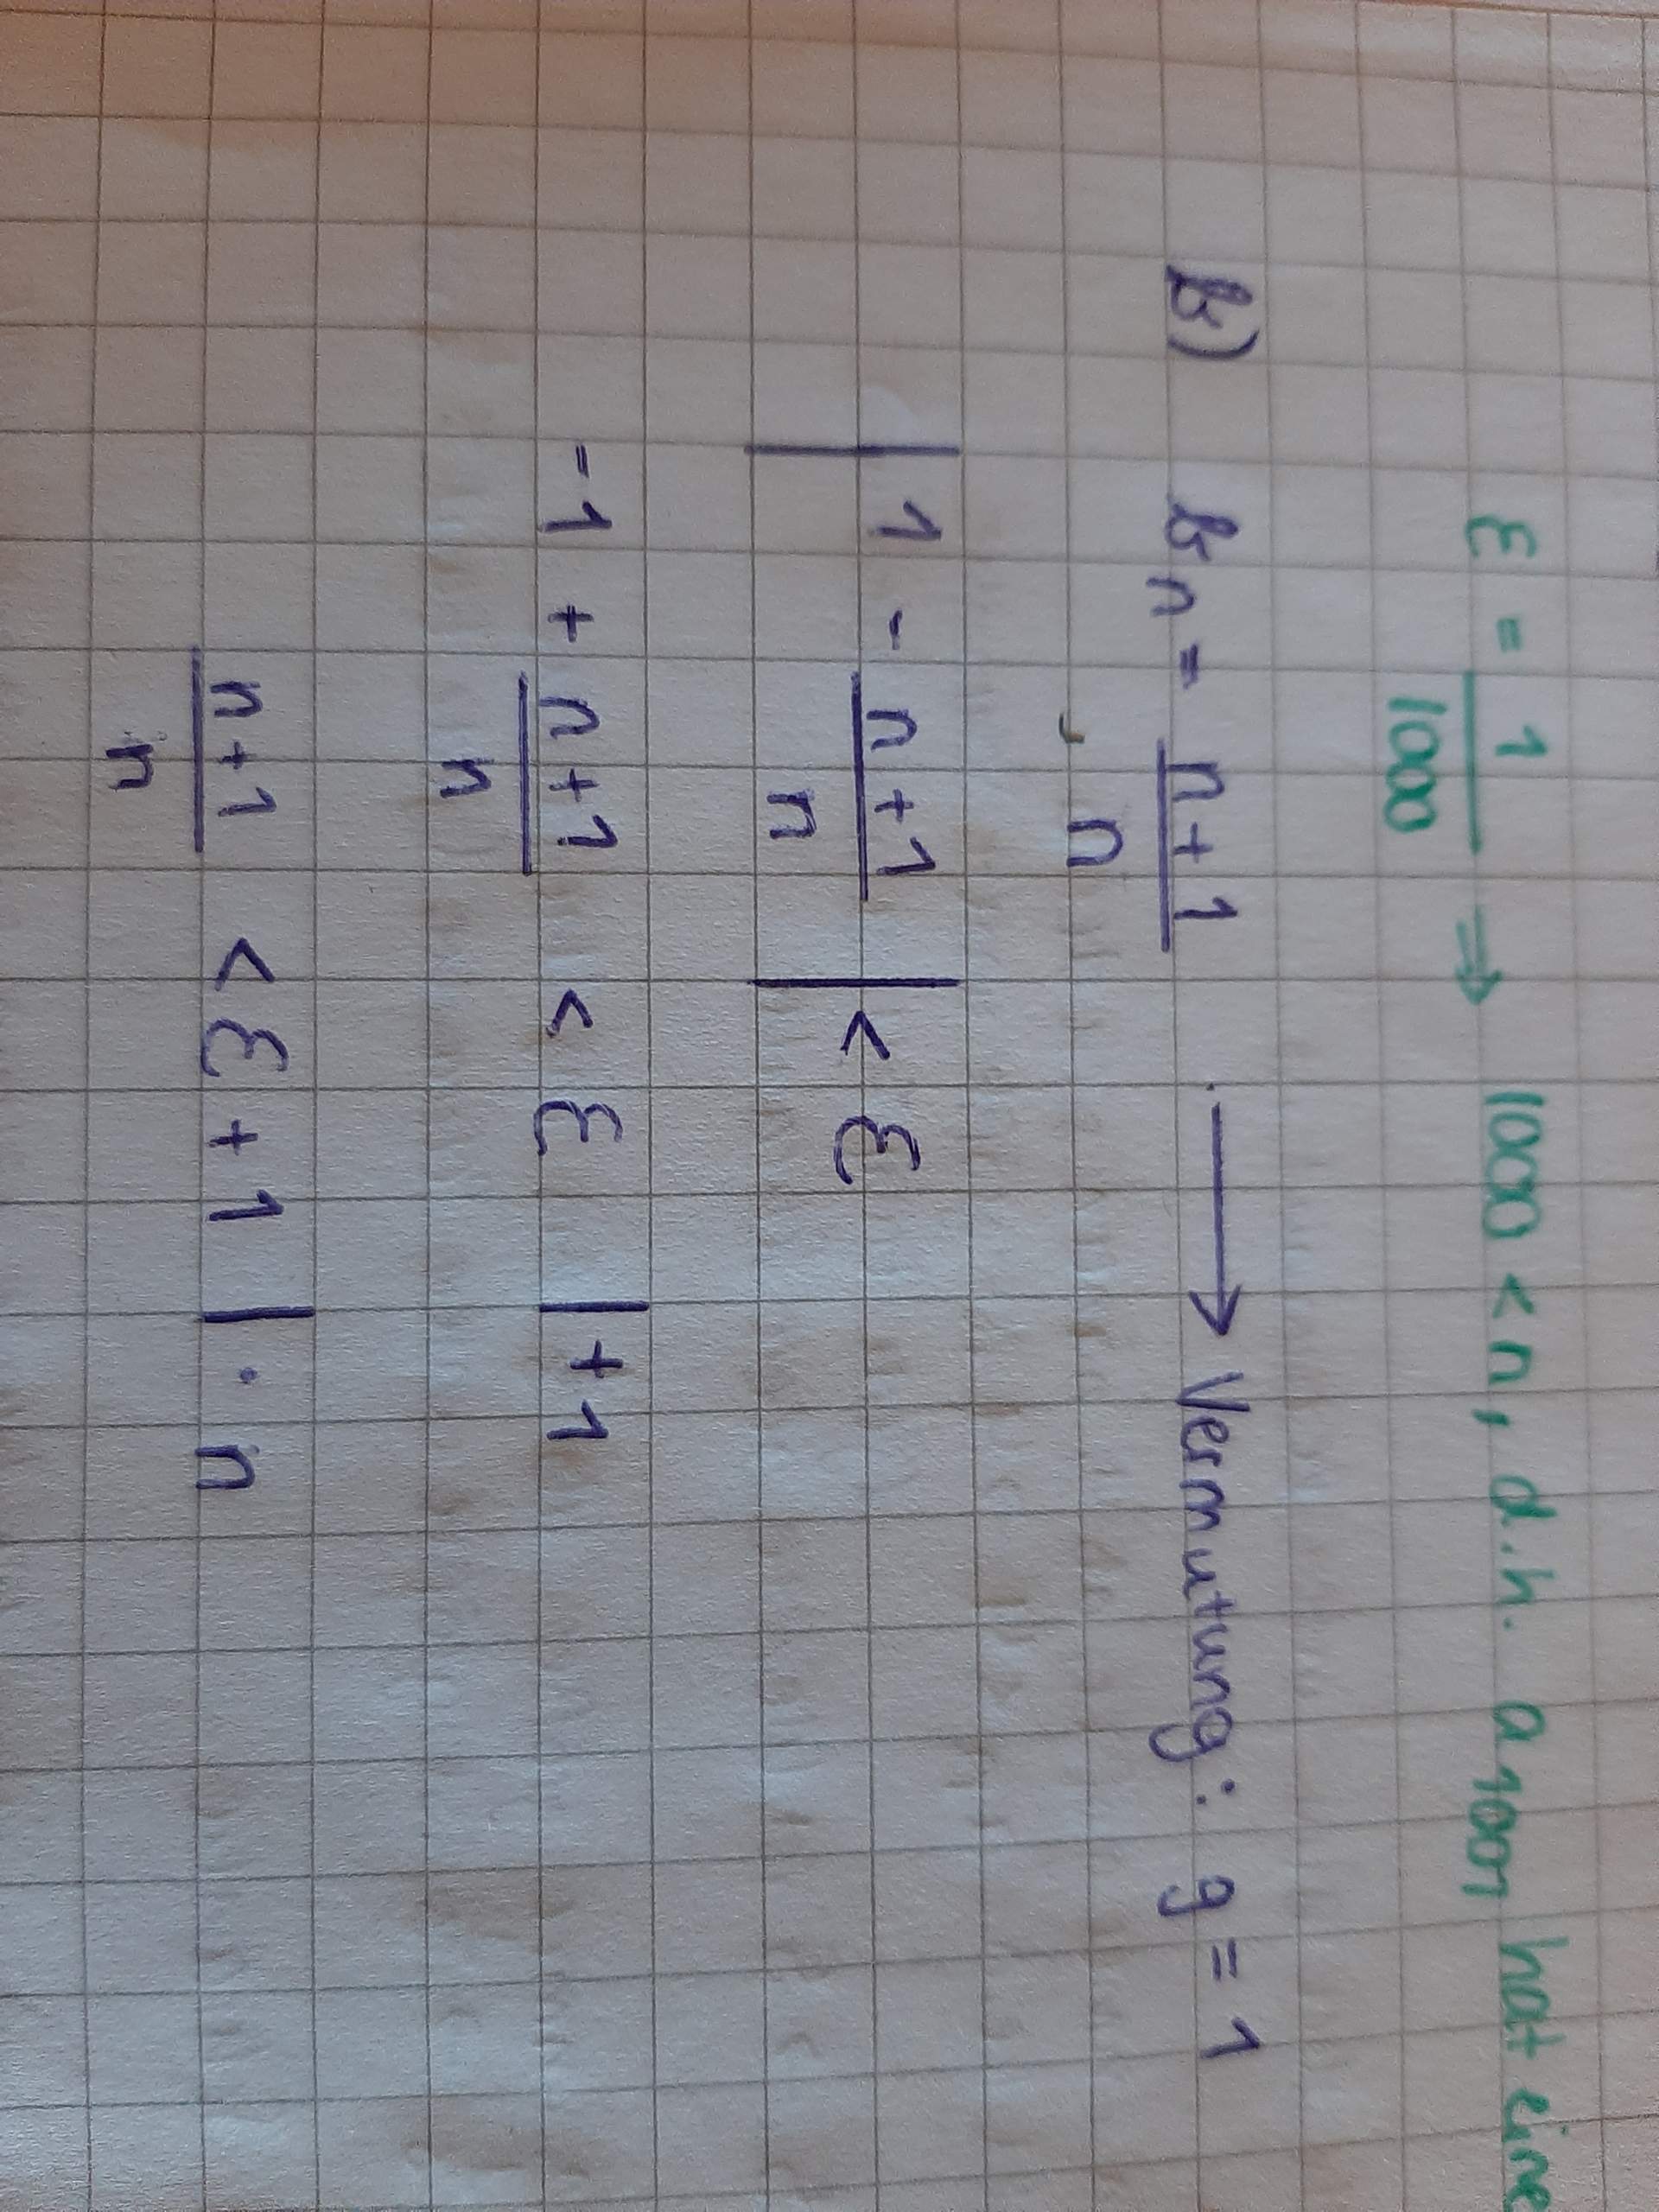 ε = 1/1000 ⇒ 1000 < n, d.h. a₁₀₀₁ hat eine
b) bₙ = (n+1)/n → Vermutung: g = 1
| 1 - (n+1)/n | < ε
-1 + (n+1)/n < ε | +1
(n+1)/n < ε + 1 | · n